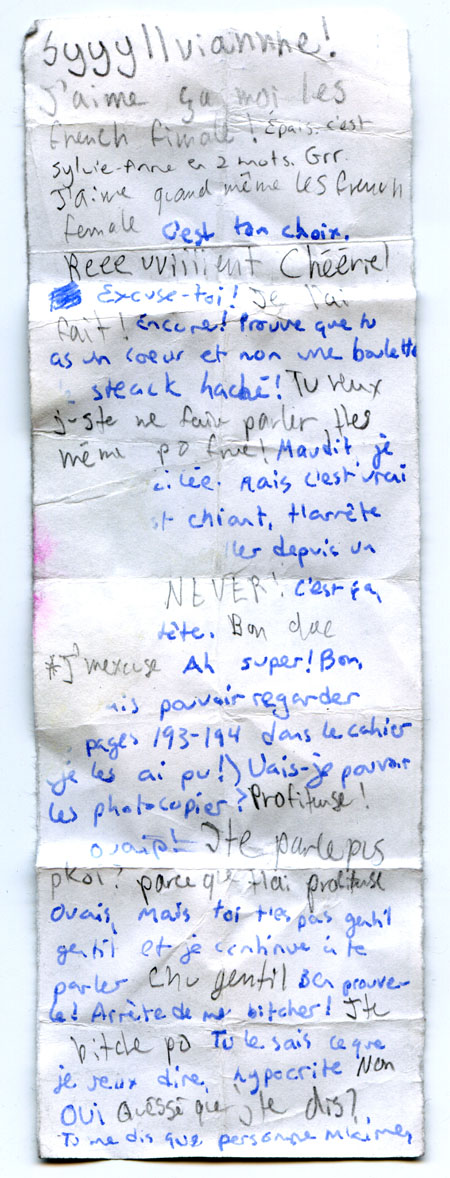 Syyyllviannne!
J'aime ça moi les
french fimale! Épais c'est
Sylvie-Anne en 2 mots. Grr.
J'aime quand même les french
female C'est ton choix.
Reeeuviiiient Chéérie!
Excuse-toi! Je l'ai
fait! Encore! Prouve que tu
as un coeur et non une boulette
steack haché! Tu veux
juste me faire parler, t'es
même po frue! Maudit, je
Mais c'est vrai
st chiant, t'arrête
ller depuis un
NEVER! C'est ça,
tête. Bon due
*J'mexcuse Ah super! Bon,
ais pouvoir regarder
pages 193-194 dans le cahier
je les ai pu!) Vais-je pouvoir
les photocopier? Profiteuse!
Ouaip! Jte parle pus
pkoi? parce que t'lai profiteuse
Ouais, mais toi t'es pas gentil
gentil et je continue à te
parler Chu gentil Ben prouve-
le! Arrête de me bitcher! Jte
bitche po Tu le sais ce que
je veux dire, hypocrite Non
OUI Quéssé que j'te dis?
Tu me dis que personne m'aime,